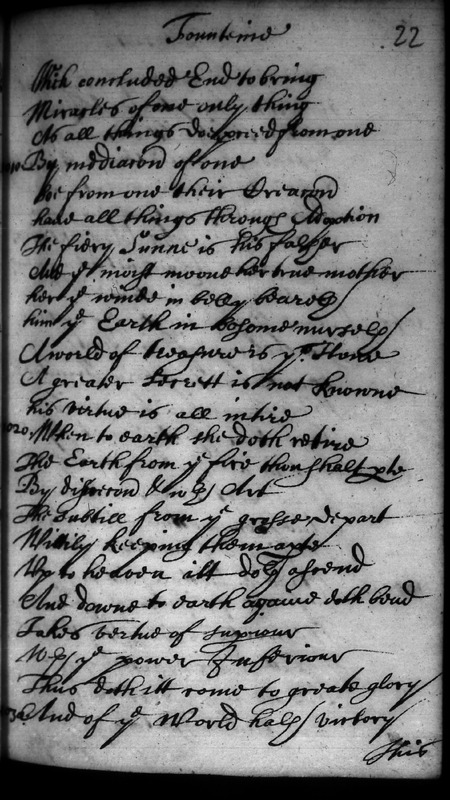 Fountaine
22
Which concluded End to bring
Miracles of one only thing
As all things doe pceed from one
By mediacon of one
Soe from one their Creacon
have all things through Adoption
The fiery Sunne is his father
And ye moist moone her true mother
her ye winde in belly beareth
him ye Earth in bosome nurseth
A world of treasure is ys Stone
A greater Secrett is not knowne
his virtue is all intire
When to earth she doth retire
The Earth from ye fire thou shalt pte
By discrecon & wth Art
The Subtill from ye grosse depart
Wittily keeping them apte
Up to heaven itt doth ascend
And downe to earth againe doth bend
Takes vertue of supiour
Wth ye power Inferiour
Thus doth itt come to greate glory
And of ye World hath victory
This